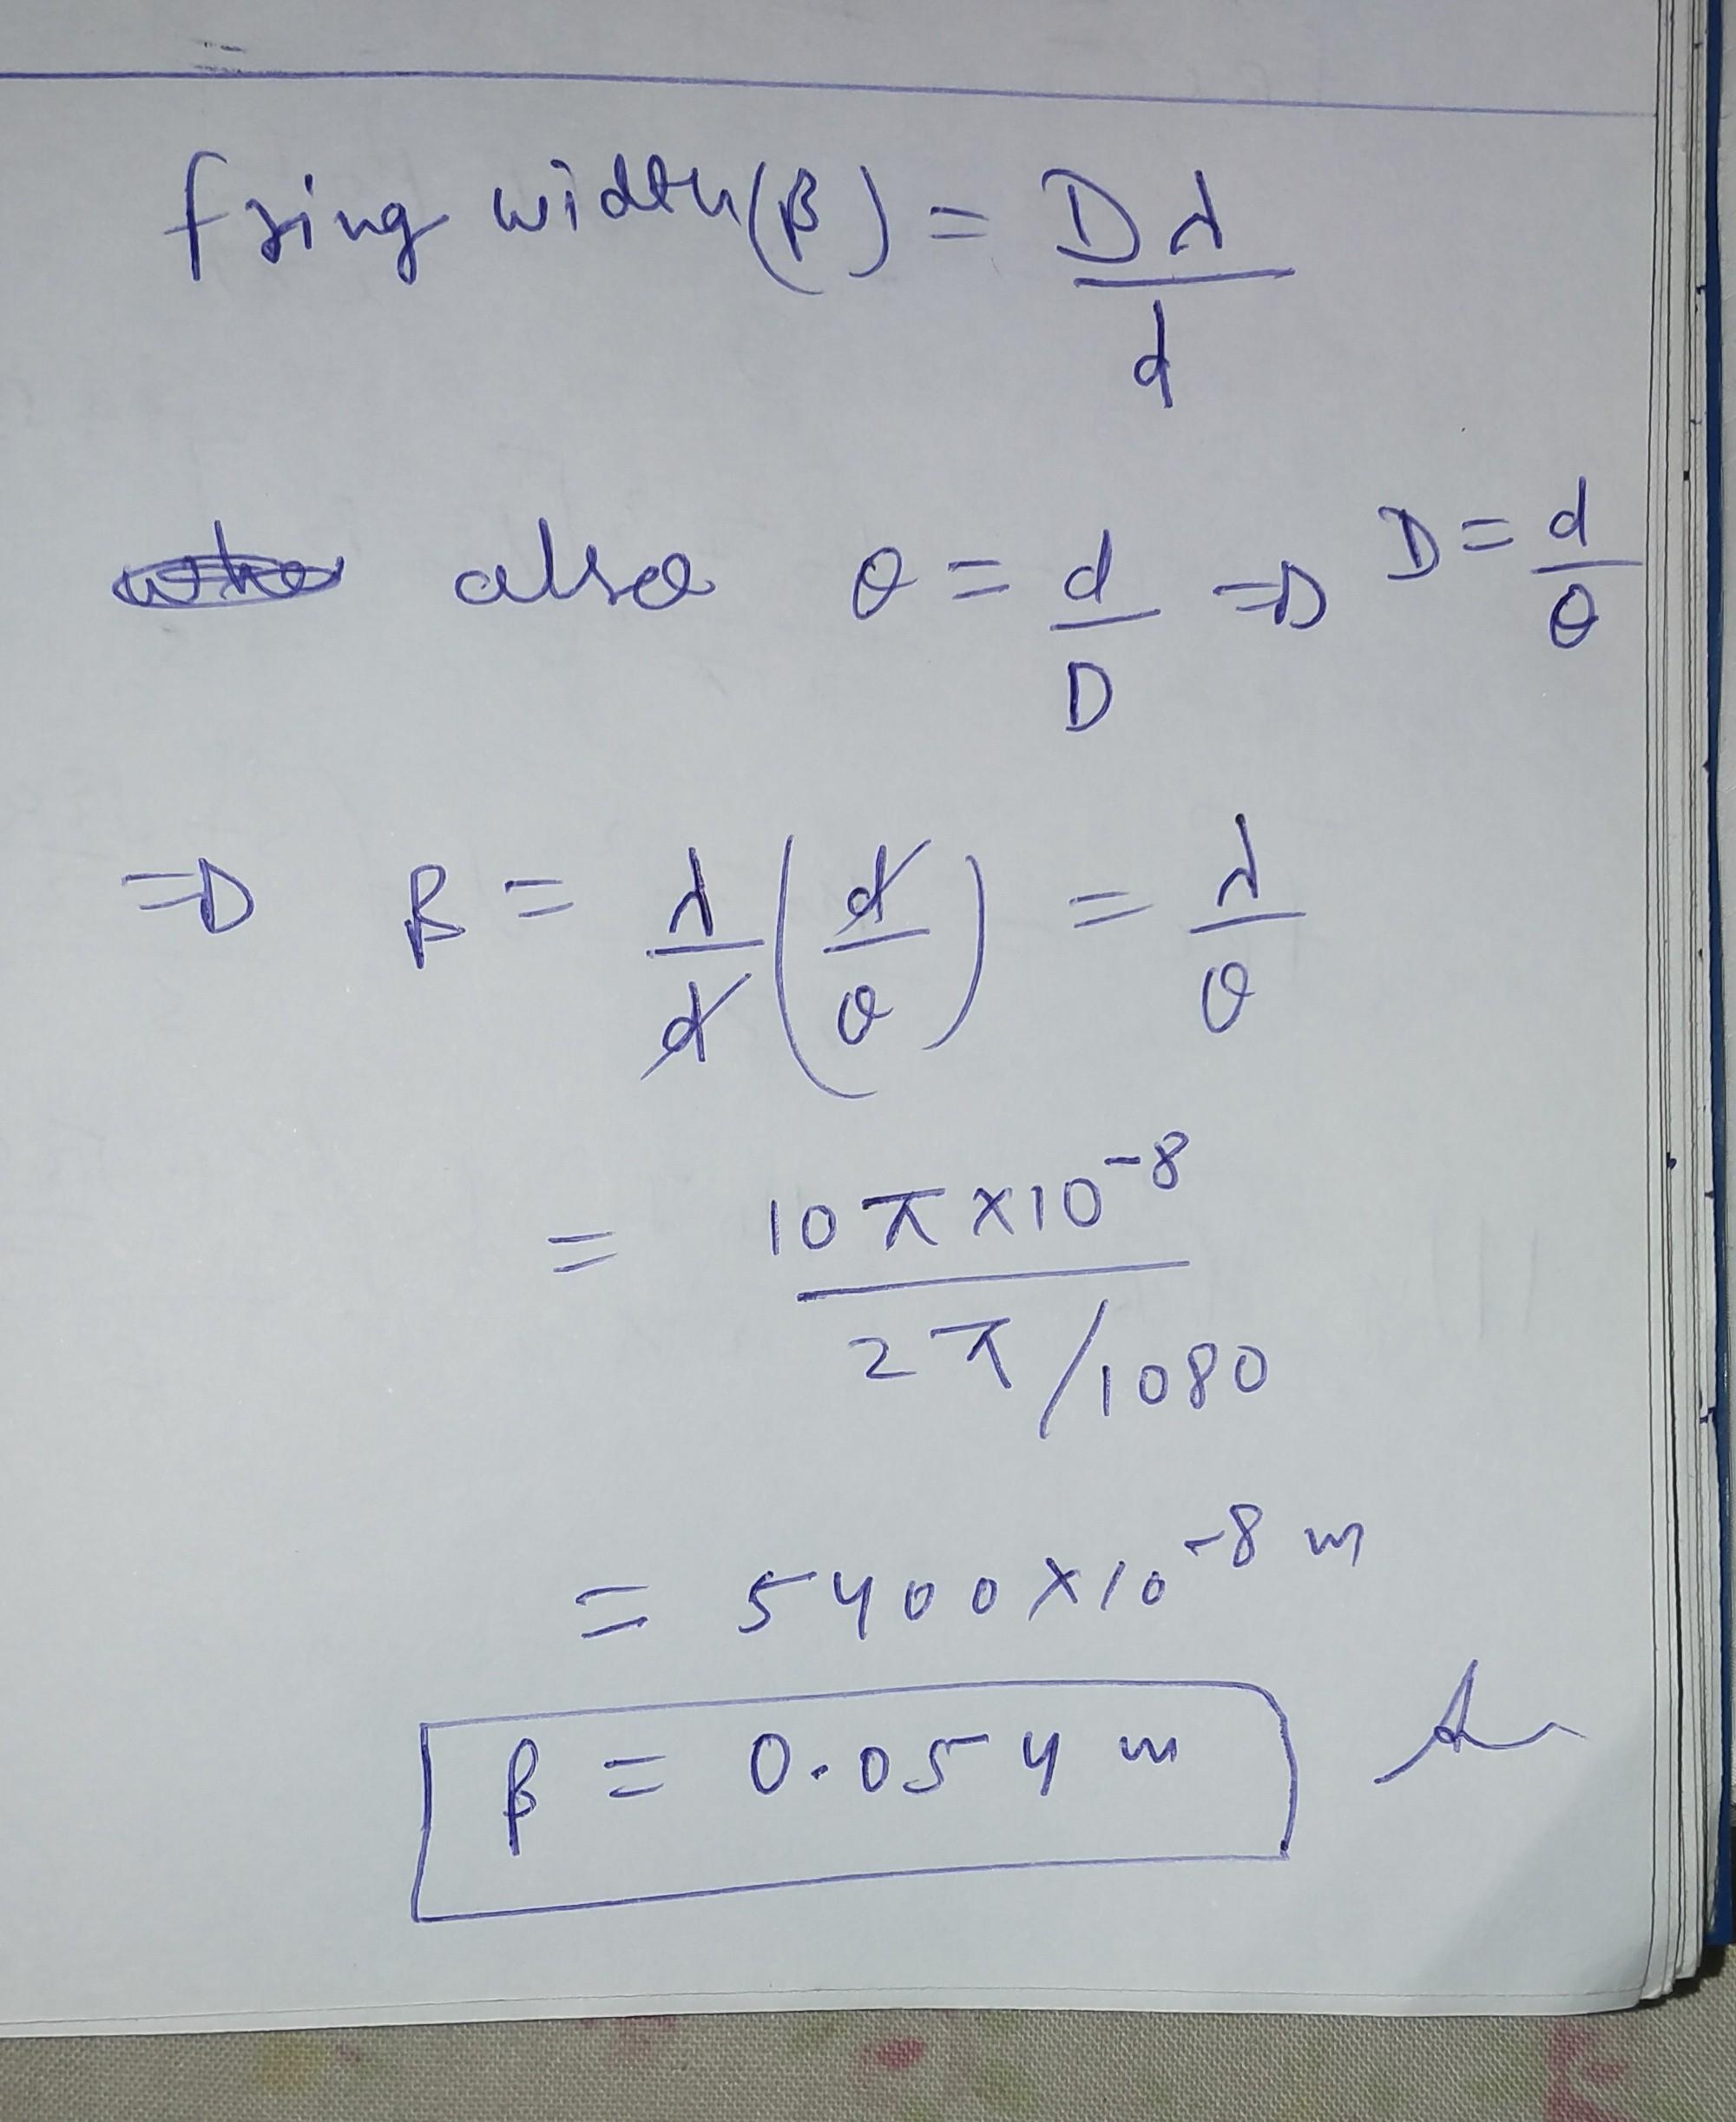 fring width(β) = Dλ/d
also θ = d/D ⇒ D = d/θ
⇒ β = λ/d (d/θ) = λ/θ
= 10π×10⁻⁸ / 2π/1080
= 5400×10⁻⁸ m
β = 0.054 m